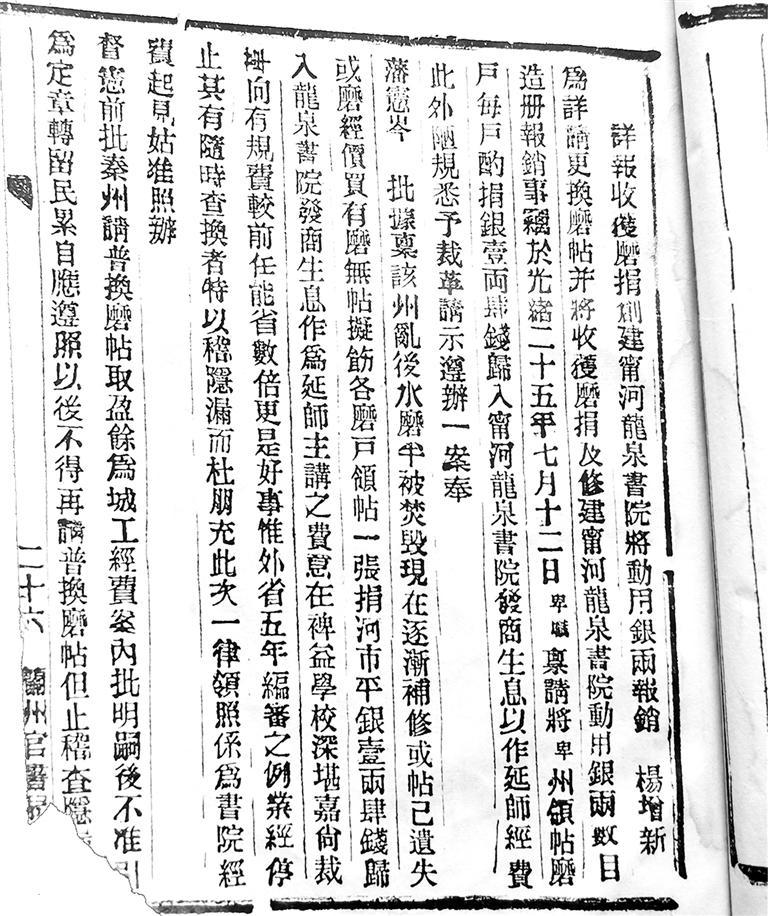 詳報收獲磨捐創建甯河龍泉書院將動用銀兩報銷　楊增新
爲詳請更換磨帖并將收獲磨捐及修建甯河龍泉書院動用銀兩數目
造册報銷事竊於光緒二十五年七月十二日卑職稟請將卑州領帖磨
戶每戶酌捐銀壹兩肆錢歸入甯河龍泉書院發商生息以作延師經費
此外陋規悉予裁革請示遵辦一案奉
藩憲岑　批據稟該州亂後水磨半被焚毀現在逐漸補修或帖已遺失
或磨經價買有磨無帖擬飭各磨戶領帖一張捐河市平銀壹兩肆錢歸
入龍泉書院發商生息作爲延師主講之費意在裨益學校深堪嘉尙裁
向有規費較前任能省數倍更是好事惟外省五年編審之例業經停
止其有隨時查換者特以稽隱漏而杜朋充此次一律領照係爲書院經
費起見姑准照辦
督憲前批秦州請普換磨帖取盈餘爲城工經費案內批明嗣後不准引
爲定章轉留民累自應遵照以後不得再請普換磨帖但止稽查隱
二十六
蘭州官書局